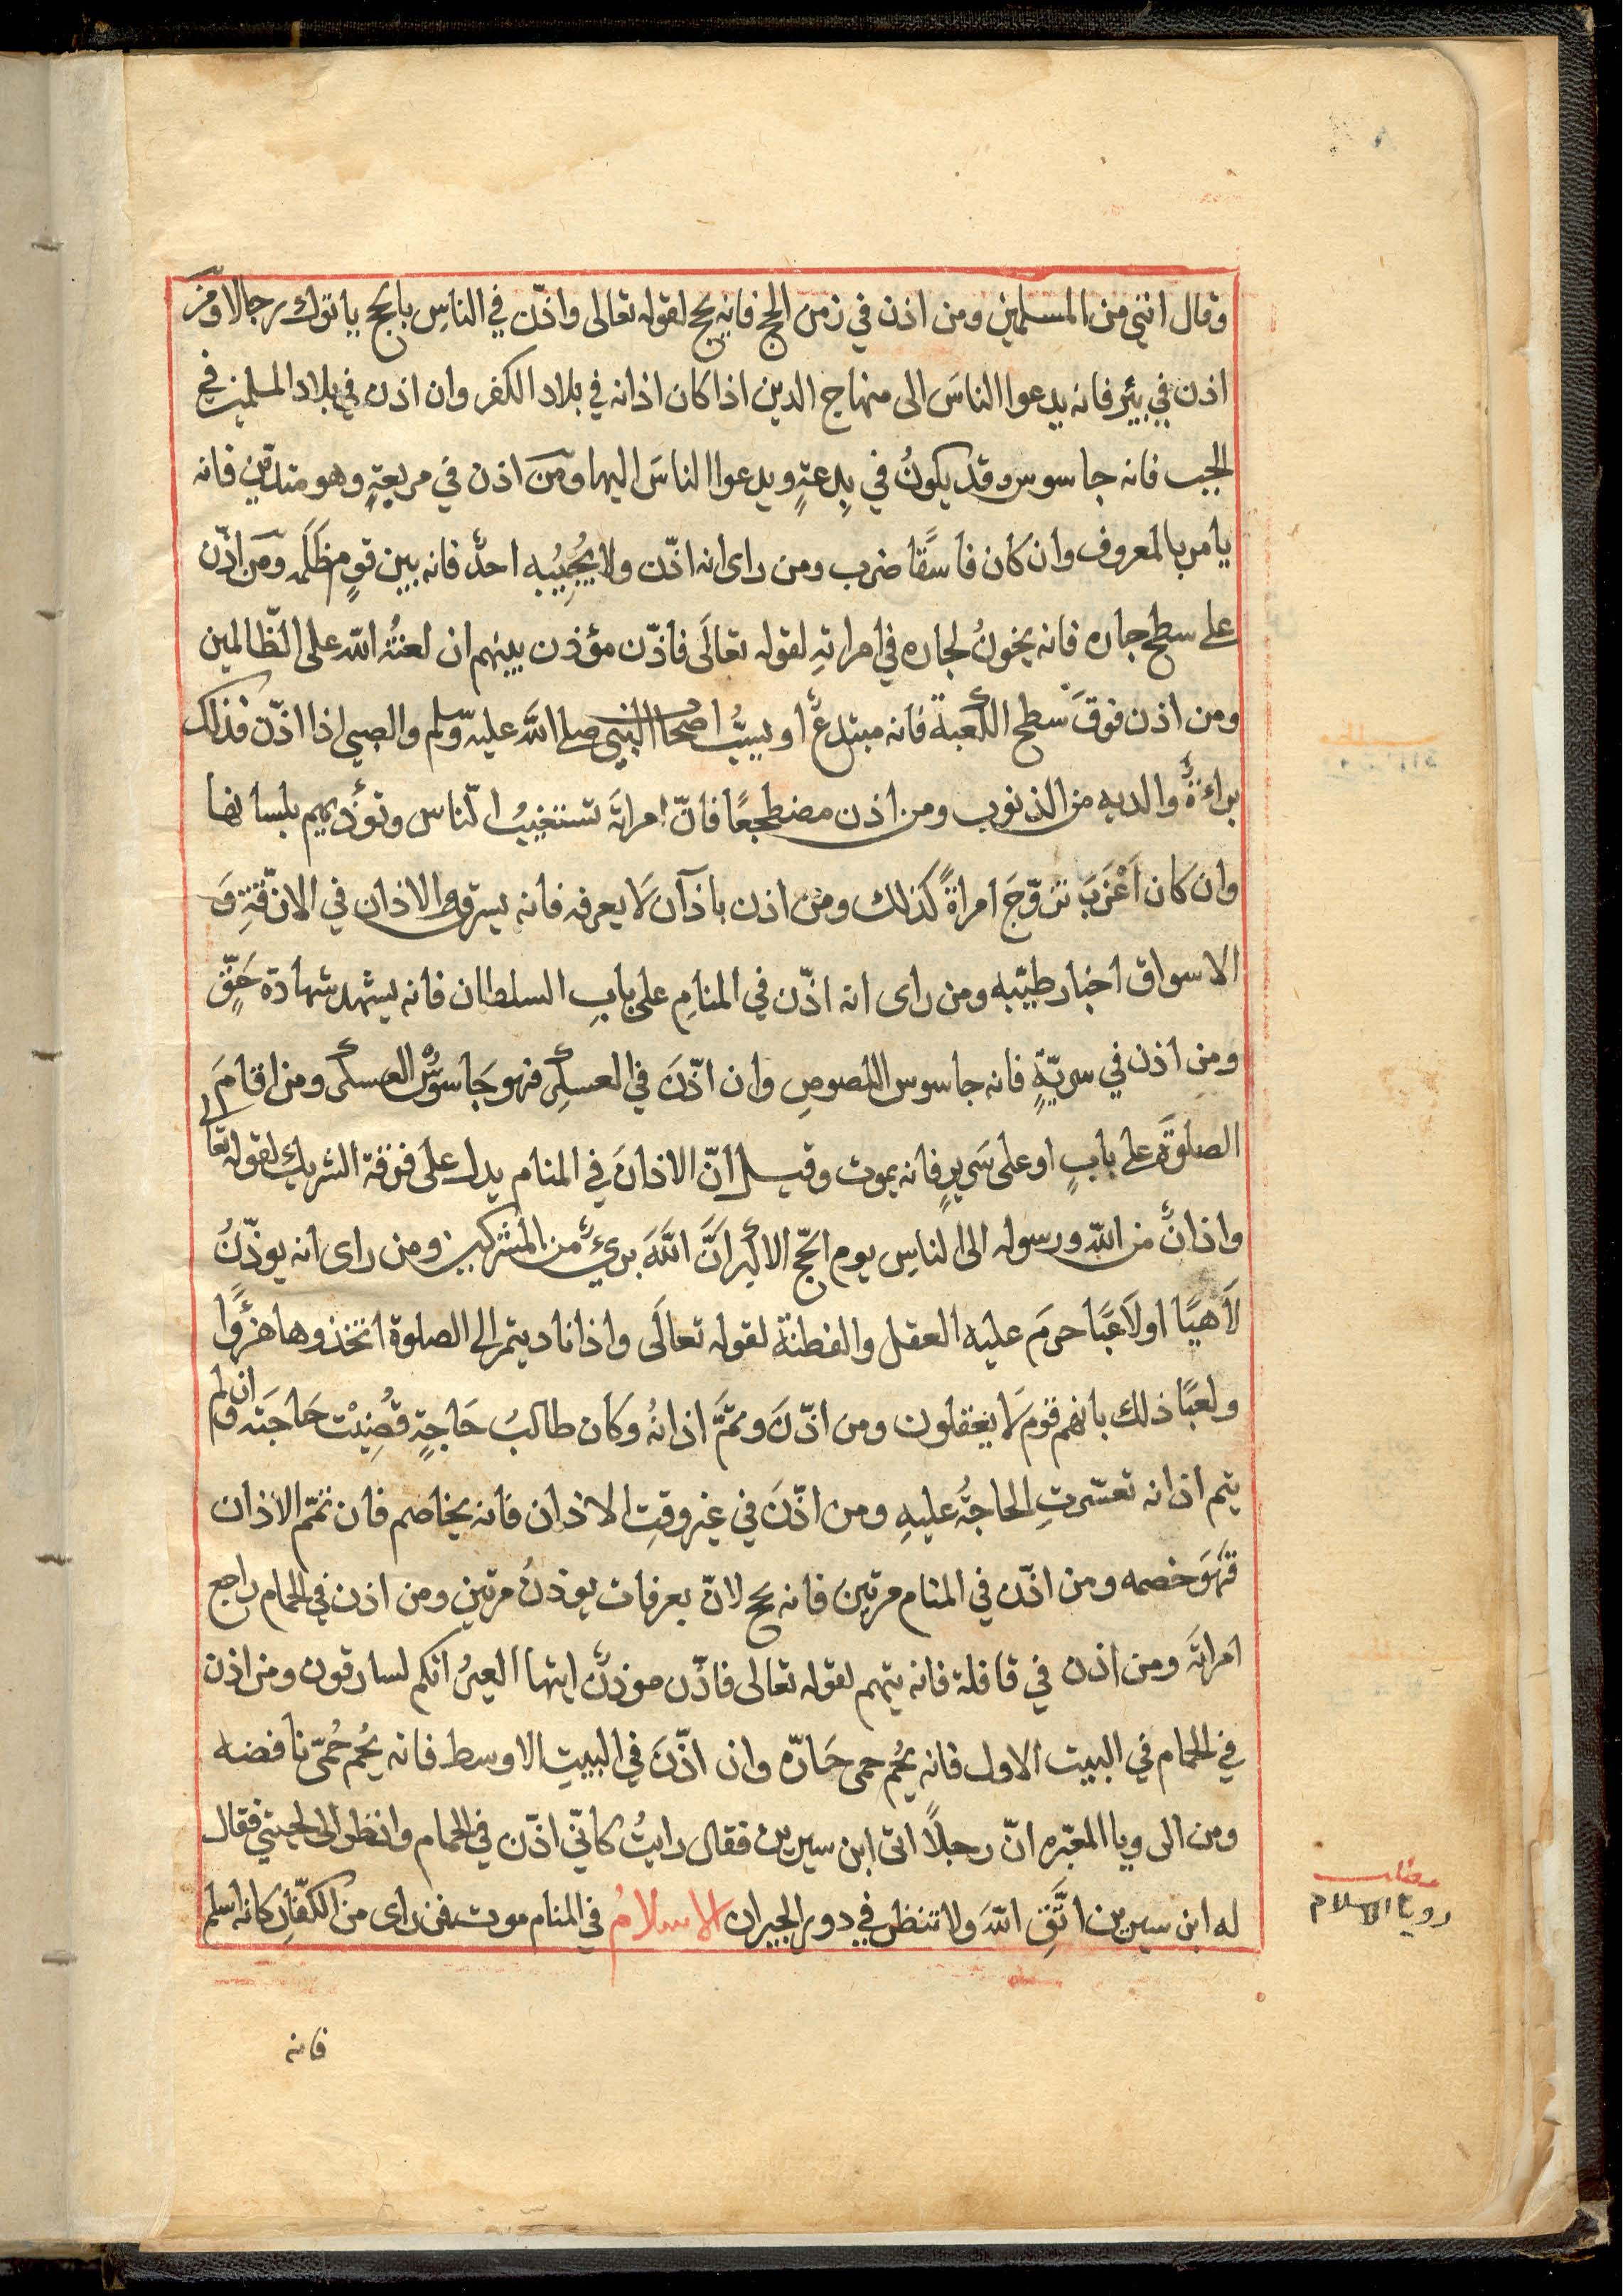 وقال انني من المسلمين ومن اذن في زمن الحج فانه يحج لقوله تعالى واذّن في الناسِ بالحج ياتوك رجالا ومَن
اذن في بئر فانه يدعوا الناسَ الى منهاج الدين اذا كان اذانه في بلاد الكفر وان اذن في بلاد المسلمين في
الجب فانه جاسوس وقد يكونُ في بِدعةٍ ويدعوا الناسَ اليها ومَن اذن في مربعةٍ وهو متديّن فانه
يامر بالمعروف وان كان فاسقًا ضرب ومن راى انه اذّن ولا يُجِيبُه احدٌ فانه بين قومٍ ظَلَمه ومَن اذّن
على سطح جاره فانه يخونُ لجاره في امراتهِ لقوله تعالَى فاذّن مؤذن بينهم ان لعنتُه الله على الظّالمين
ومن اذن فوقَ سطح الكعبة فانه مبتدعٌ او يسبُّ اصحاب النبيى صلى اللَّه عليه وسلم والصبى اذا اذّن فذلك
براءةُ والديه من الذنوب ومن اذن مضطجعًا فانّ امراتَه تستغيبُ النّاس وتؤذيهم بلسانها
وان كان اَعْزَبَ تزوّجَ امراةً كذلك ومن اذن باذآن لَا يعرفه فانه يسرق والاذان في الازّقةِ وَ
الاسواق اخبار طيّبه ومن راى انه اذّن في المنامِ على بابِ السلطان فانه يشهد شهادة حَقٍّ
ومن اذن في سريّةٍ فانه جاسوس اللصوصِ وان اذّنَ في العسكرِ فهو جَاسوسُ العسكر ومن اقامَ
الصلوةَ على بابٍ او على سَريرٍ فانه يموت وقيل انّ الاذانَ في المنام يدل على فرقة الشريك لقوله تعالى
واذانٌ من اللّه ورسوله الى الناسِ يوم الحجّ الاكبر اَنَّ اللَّهَ بريءٌ من المُشركين ومن راى انه يوذّنُ
لَاهيًا او لَاعبًا حرمَ عليه العقل والفطنة لقوله تعالَى واذا ناديتم الى الصلوة اتخذوها هزؤًا
ولعبًا ذلك بانهم قومٌ لَا يعقلون ومن اذّنَ وتمَّ اذانهُ وكَان طالبُ حَاجةٍ قُضِيَتْ حَاجَته وان لم
يتم اذانه تعسّرتِ الحاجةُ عليهِ ومن اذّنَ في غير وقتِ الاذان فانه يخاصم فان تمّم الاذان
قَهَرَ خصمه ومن اذّن في المنام مرتين فانه يحج لانّ بعرفات يوذنُ مرتين ومن اذن في الحمام راجع
امراتَه ومن اذن في قافلة فانه يتهم لقوله تعالى فاذّن موذنٌ ايتها العيرُ انكم لسارقون ومن اذن
في الحمام في البيت الاول فانه يُحم حمى حَارّه وان اذّنَ في البيتِ الاوسط فانه يُحم حُمّى نافضه
ومن الرويا المعبّره انّ رجلًا اتى ابن سيرين فقال رايتُ كانّي اذّن في الحمام وانظر الى لحيتي فقال
له ابن سيرين اتَّقِ اللهَ ولا تنظر في دور الجيران الاسلامُ في المنام موت فمن راى من الكفّارِ كانه اسلم
مطلب
رويا الاسلام
فانه